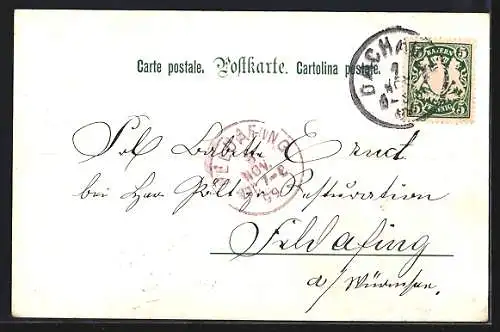 Carte postale. Postkarte. Cartolina postale.
BAYERN
5 5
DACHAU
FELDAFING
NOV.
99
Frl Babette Ernst
bei Her Restauration
Feldafing
a/ Würmsee.